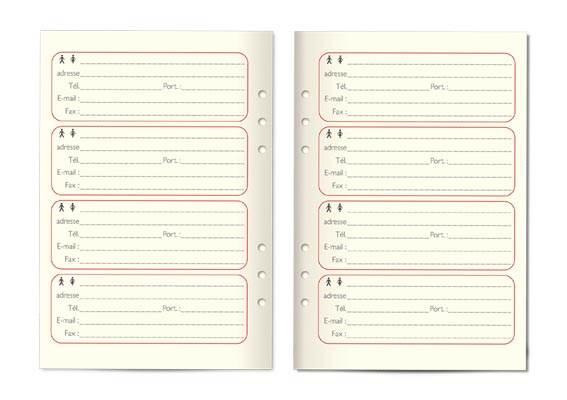 adresse
Tél. Port. :
E-mail :
Fax :
adresse
Tél. Port. :
E-mail :
Fax :
adresse
Tél. Port. :
E-mail :
Fax :
adresse
Tél. Port. :
E-mail :
Fax :
adresse
Tél. Port. :
E-mail :
Fax :
adresse
Tél. Port. :
E-mail :
Fax :
adresse
Tél. Port. :
E-mail :
Fax :
adresse
Tél. Port. :
E-mail :
Fax :